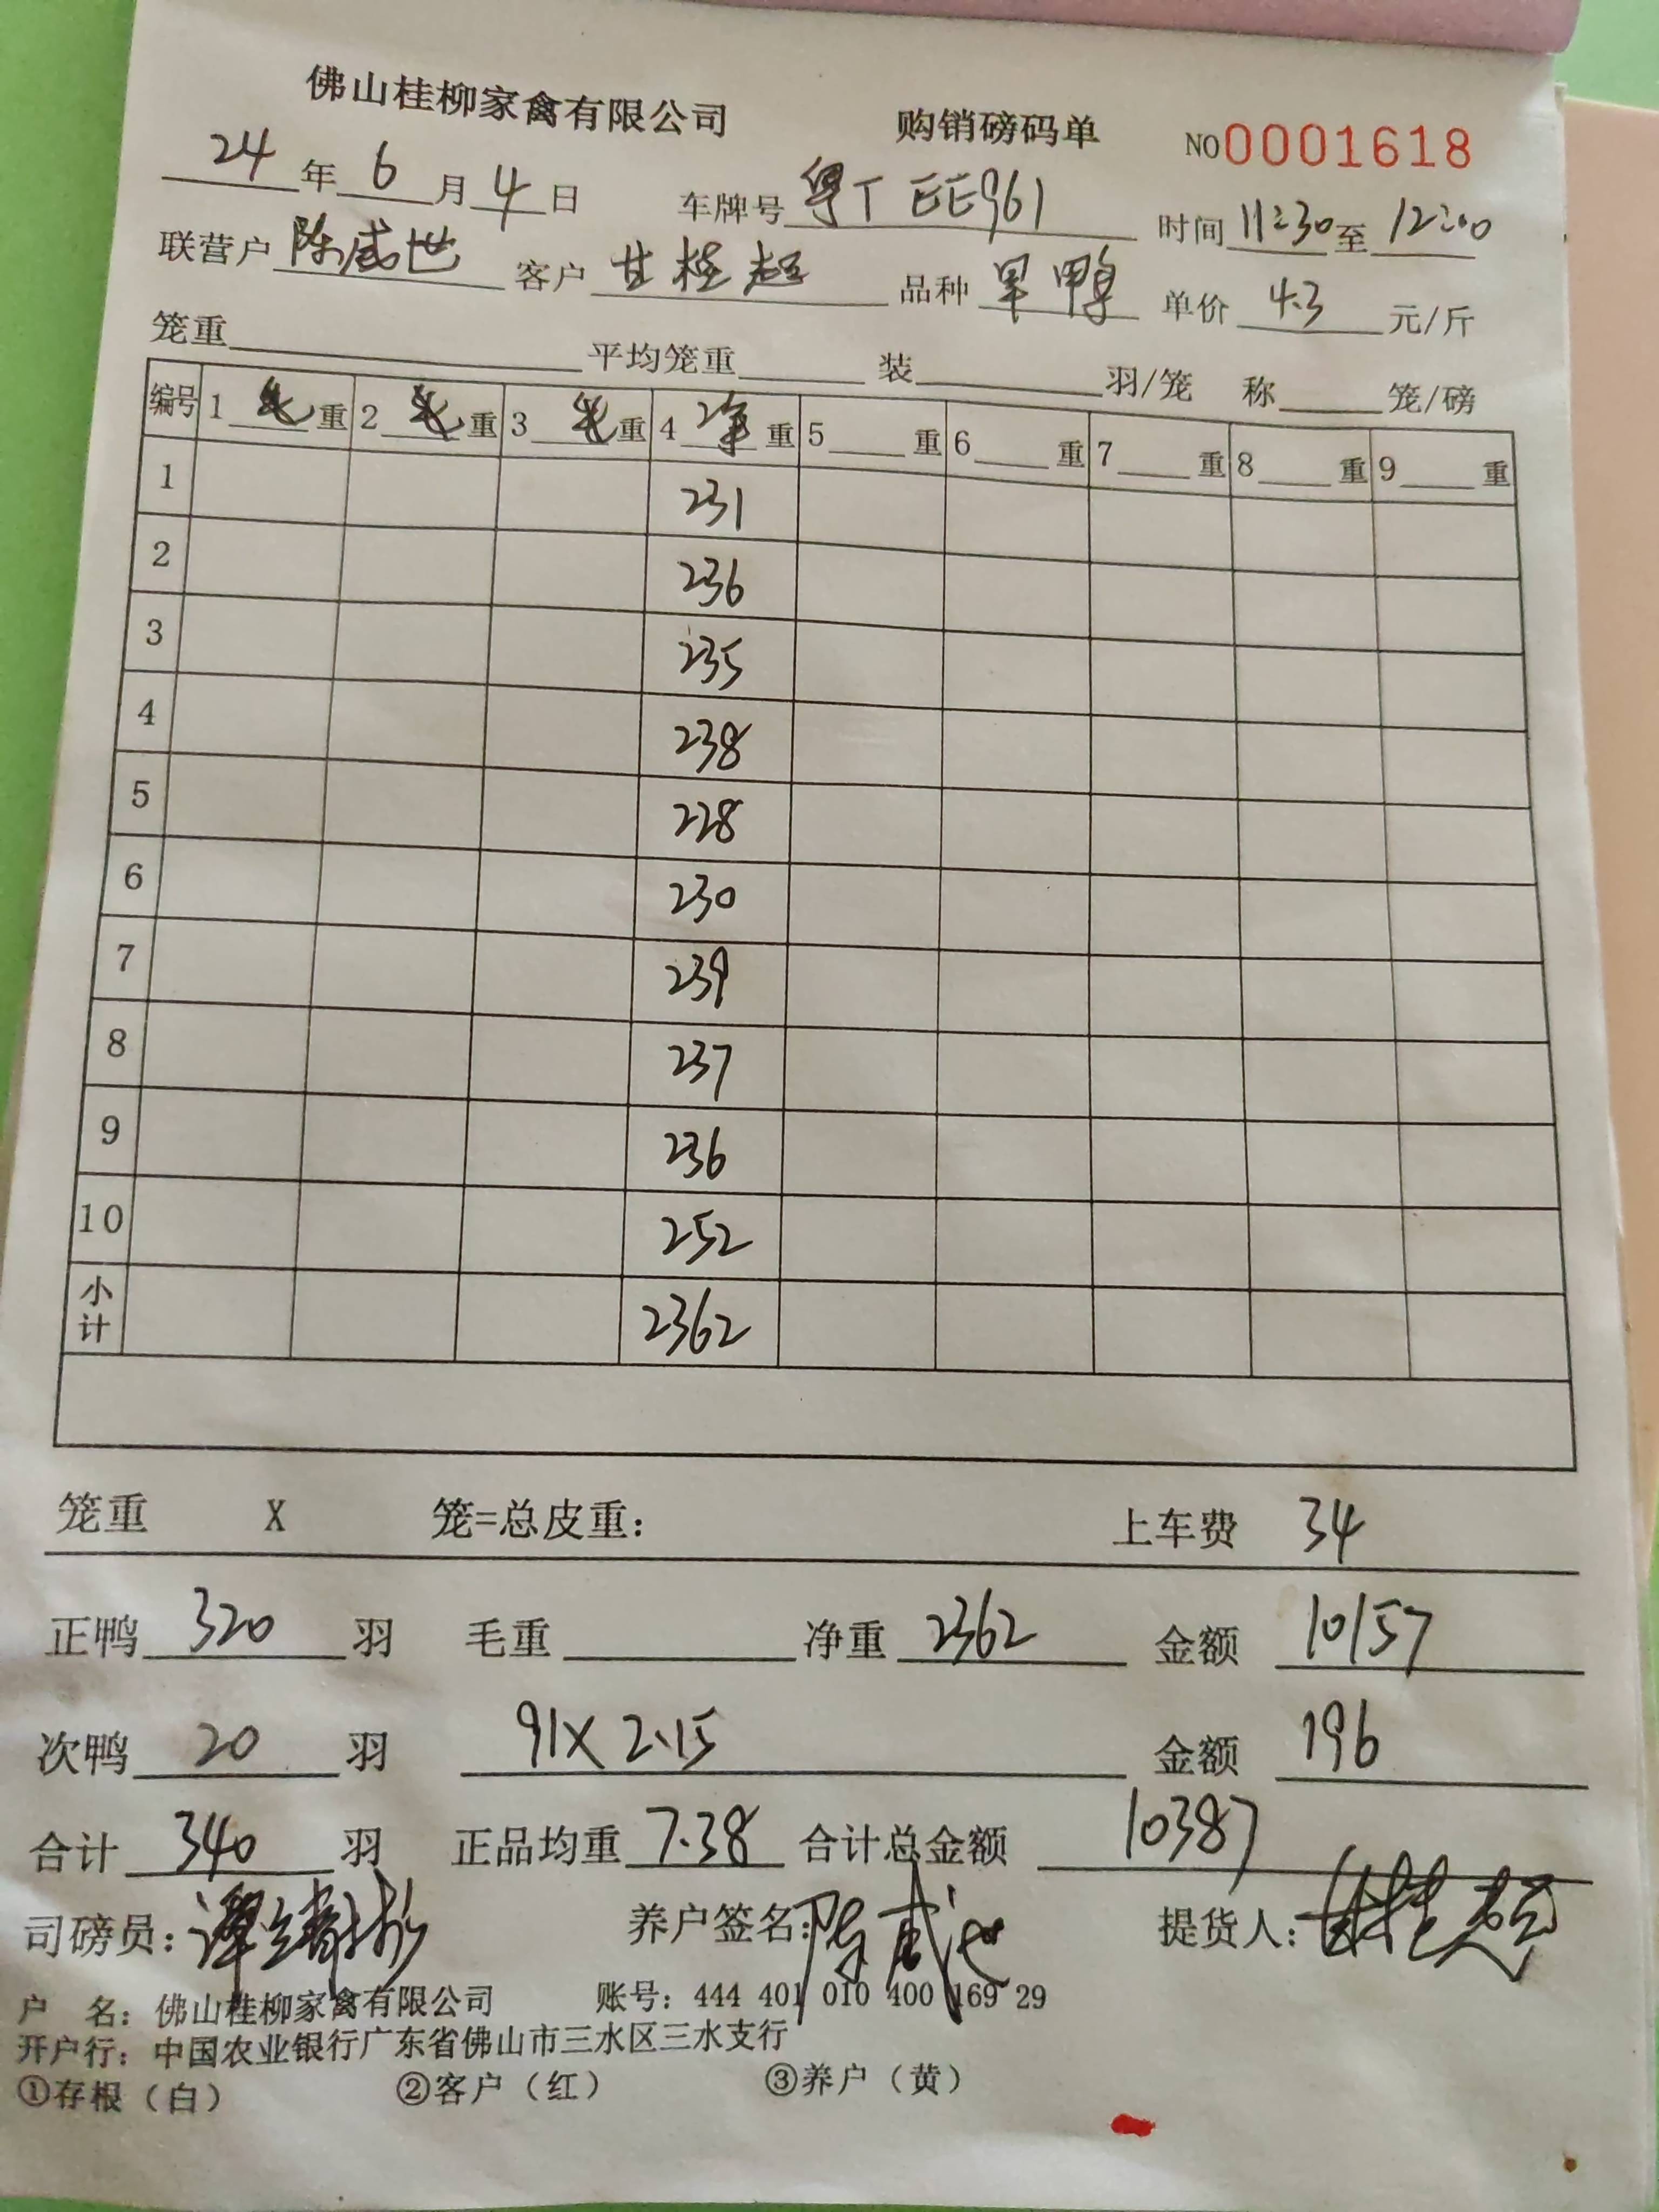 佛山桂柳家禽有限公司 购销磅码单 NO0001618
24年6月4日 车牌号粤T EE961 时间11:30至12:00
联营户陈威世 客户甘桂超 品种旱鸭 单价4.3元/斤
笼重 平均笼重 装 羽/笼 称 笼/磅
编号 1毛重 2毛重 3毛重 4净重 5重 6重 7重 8重 9重
1 231
2 236
3 235
4 238
5 228
6 230
7 239
8 237
9 236
10 252
小计 2362
笼重 X 笼=总皮重: 上车费 34
正鸭320羽 毛重 净重2362 金额10157
次鸭20羽 91X2.15 金额196
合计340羽 正品均重7.38 合计总金额10387
司磅员: 养户签名:陈威世 提货人:甘桂超
户 名: 佛山桂柳家禽有限公司 账号: 444 401 010 400 169 29
开户行: 中国农业银行广东省佛山市三水区三水支行
①存根（白） ②客户（红） ③养户（黄）